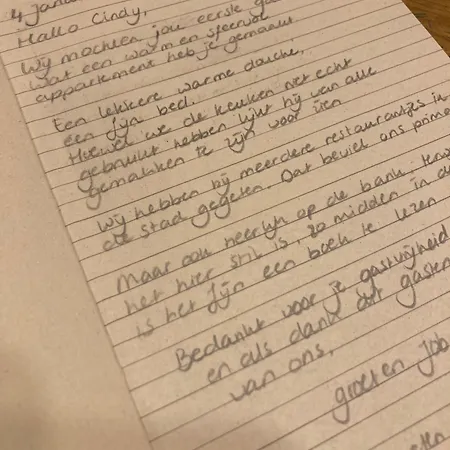 4 janua
Hallo Cindy,
Wij mochten jou eerste ga
wat een warm en sfeervol
appartement heb je gemaakt.
Een lekkere warme douche,
een fijn bed.
Hoewel we de keuken niet echt
gebruikt hebben lijkt hij van alle
gemakken te zijn voor zien
Wij hebben bij meerdere restaurantjes in
de stad gegeten. Dat beviel ons prima
Maar ook heerlijk op de bank, terw
het hier stil is, zo midden in de
is het fijn een boek te lezen
Bedankt voor je gastvrijheid
en als dank dit gasten
van ons,
groeten Job